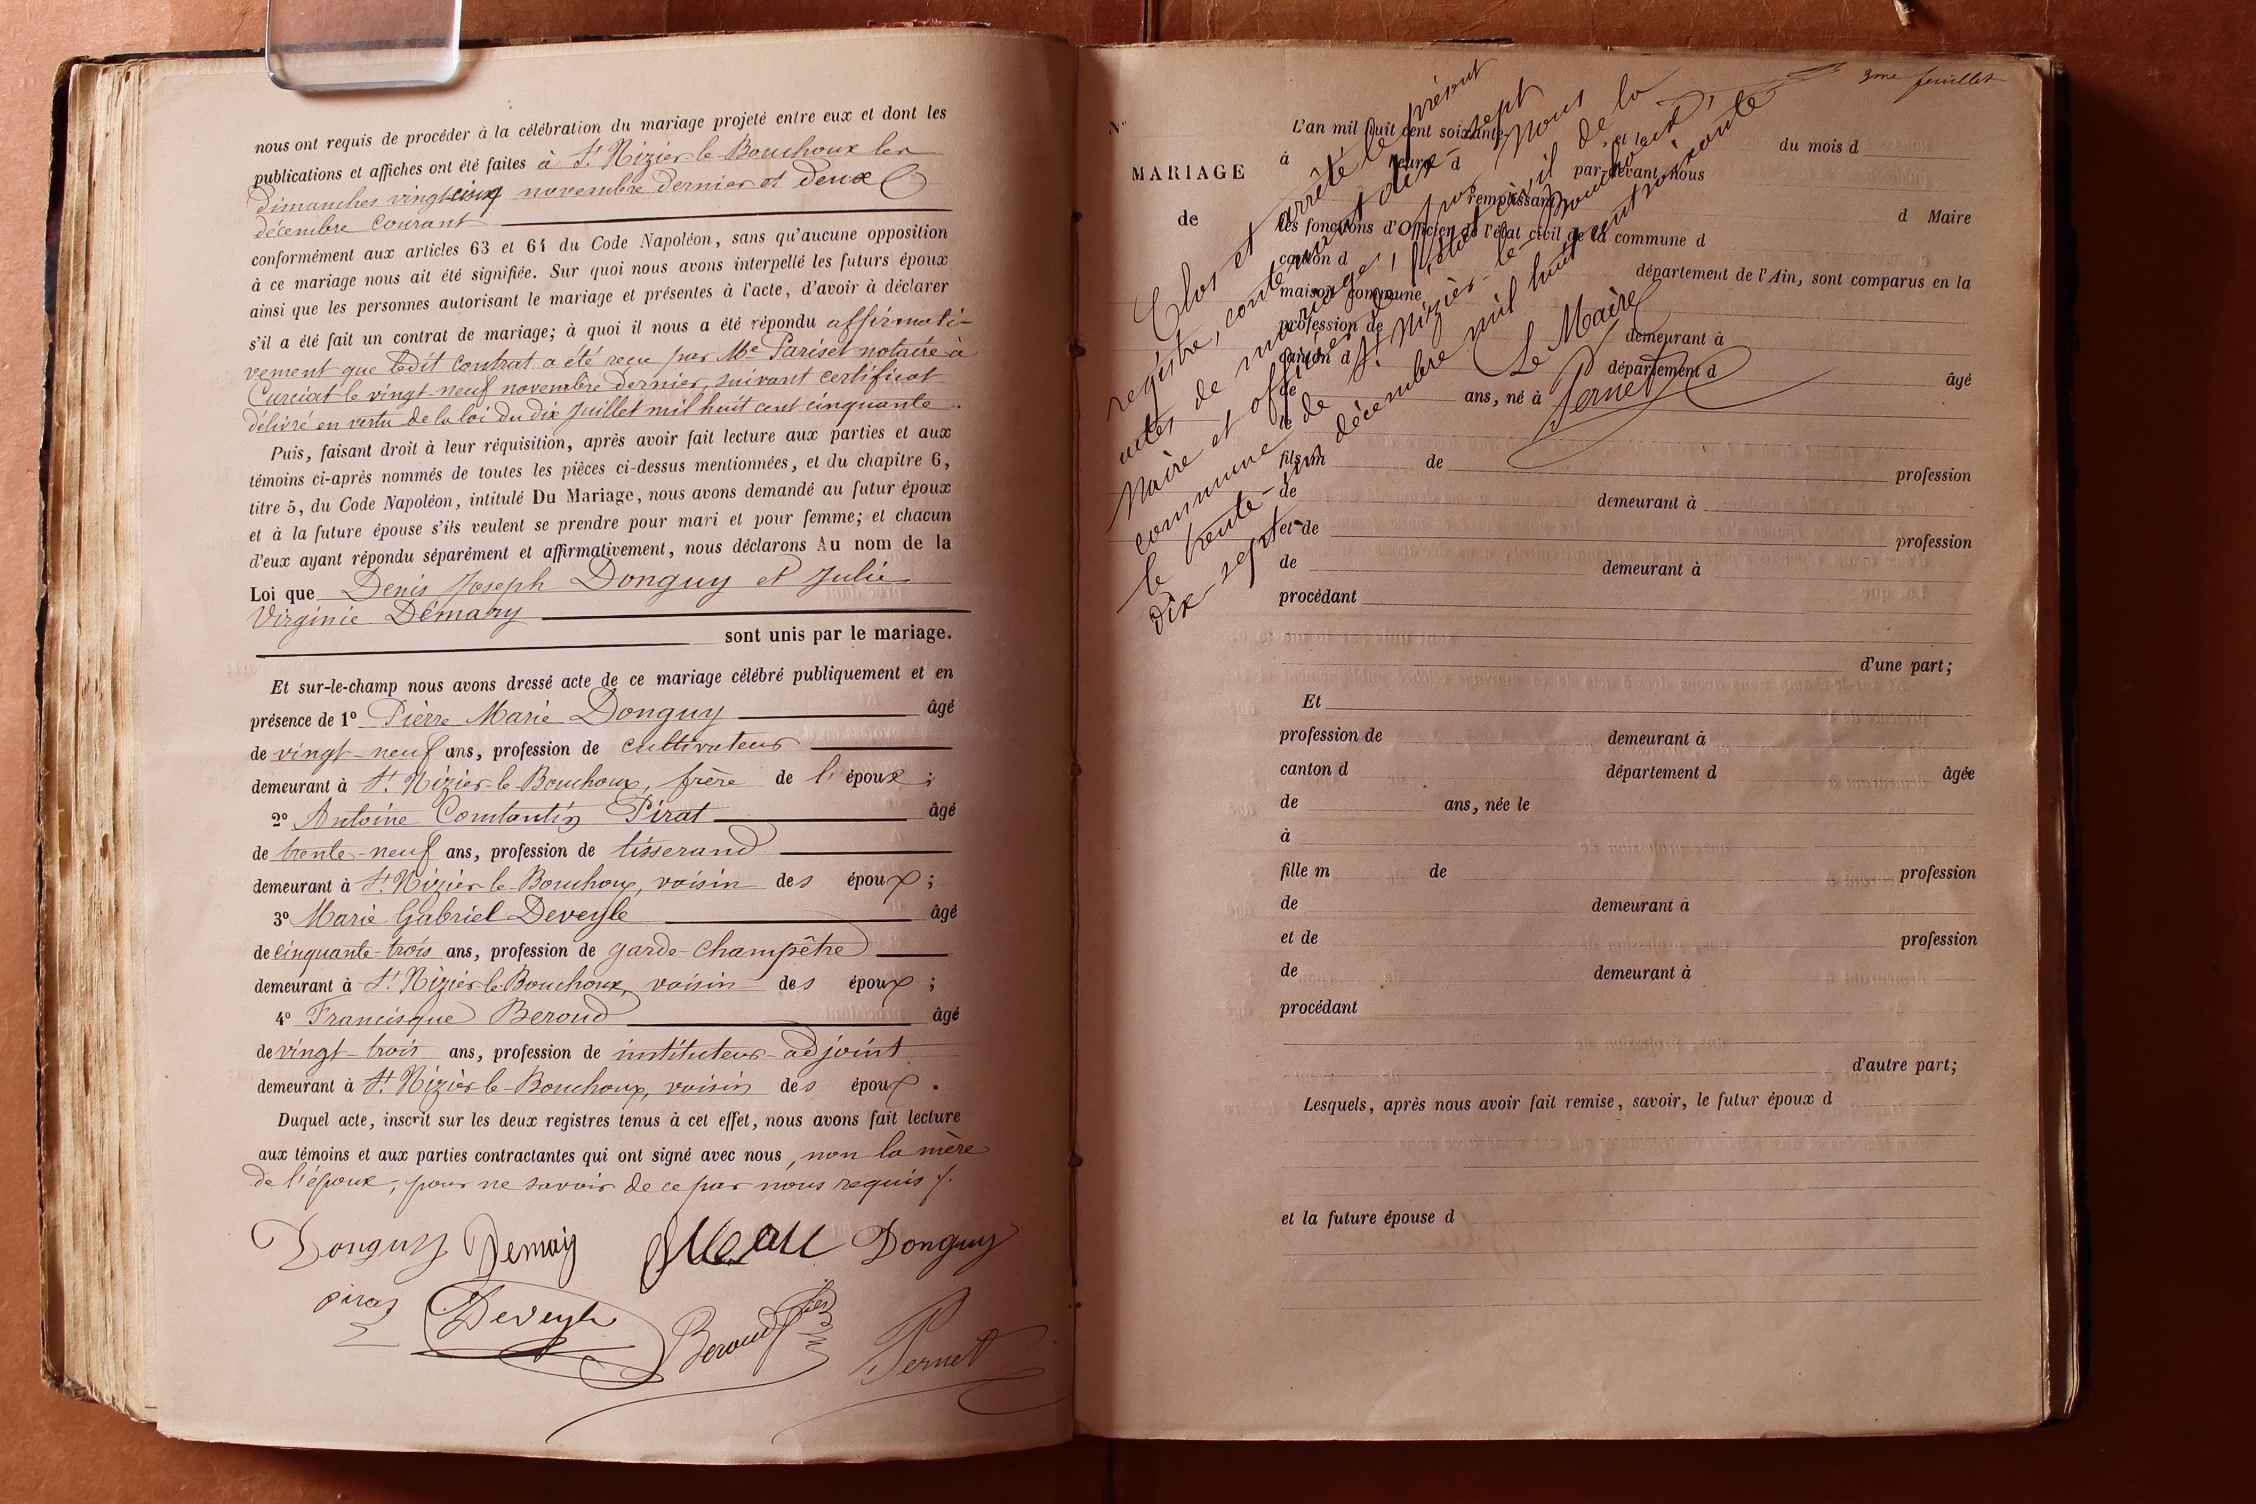 nous ont requis de procéder à la célébration du mariage projeté entre eux et dont les
publications et affiches ont été faites à St Nizier le Bouchoux les
dimanches vingt-cinq novembre dernier et deux
décembre courant
conformément aux articles 63 et 64 du Code Napoléon, sans qu'aucune opposition
à ce mariage nous ait été signifiée. Sur quoi nous avons interpellé les futurs époux
ainsi que les personnes autorisant le mariage et présentes à l'acte, d'avoir à déclarer
s'il a été fait un contrat de mariage; à quoi il nous a été répondu affirmati-
vement que ledit contrat a été reçu par Me Pariset notaire à
Curciat le vingt-neuf novembre dernier, suivant certificat
délivré en vertu de la loi du dix juillet mil huit cent cinquante.
Puis, faisant droit à leur réquisition, après avoir fait lecture aux parties et aux
témoins ci-après nommés de toutes les pièces ci-dessus mentionnées, et du chapitre 6,
titre 5, du Code Napoléon, intitulé Du Mariage, nous avons demandé au futur époux
et à la future épouse s'ils veulent se prendre pour mari et pour femme; et chacun
d'eux ayant répondu séparément et affirmativement, nous déclarons Au nom de la
Loi que Denis Joseph Donguy et Julie
Virginie Démary
sont unis par le mariage.
Et sur-le-champ nous avons dressé acte de ce mariage célébré publiquement et en
présence de 1º Pierre Marie Donguy âgé
de vingt-neuf ans, profession de cultivateur
demeurant à St Nizier-le-Bouchoux, frère de l'époux;
2º Antoine Constantin Pirat âgé
de trente-neuf ans, profession de tisserand
demeurant à St Nizier-le-Bouchoux, voisin des époux;
3º Marie Gabriel Deveyle âgé
de cinquante-trois ans, profession de garde-champêtre
demeurant à St Nizier-le-Bouchoux, voisin des époux;
4º Francisque Beroud âgé
de vingt-trois ans, profession de instituteur-adjoint
demeurant à St Nizier-le-Bouchoux, voisin des époux.
Duquel acte, inscrit sur les deux registres tenus à cet effet, nous avons fait lecture
aux témoins et aux parties contractantes qui ont signé avec nous, non la mère
de l'époux, pour ne savoir de ce par nous requis /.
Donguy Demay Donguy
pirat Deveyle Beroud Pernet
3me feuillet
Nº
MARIAGE
de
L'an mil huit cent soixante du mois d
à heure d par-devant nous
remplissant d Maire
les fonctions d'Officier de l'état civil de la commune d
canton d département de l'Ain, sont comparus en la
maison commune
profession de demeurant à
canton d département d âgé
de ans, né à
le
fils m de profession
de demeurant à
et de profession
de demeurant à
procédant
d'une part;
Et
profession de demeurant à
canton d département d âgée
de ans, née le
à
fille m de profession
de demeurant à
et de profession
de demeurant à
procédant
d'autre part;
Lesquels, après nous avoir fait remise, savoir, le futur époux d
et la future épouse d
Clos et arrêté le présent
registre, contenant dix-sept
actes de mariage, par Nous
Maire et officier de l'état civil de la
commune de St Nizier-le-Bouchoux,
le trente-un décembre mil huit cent soixante
dix-sept.
Le Maire
Pernet